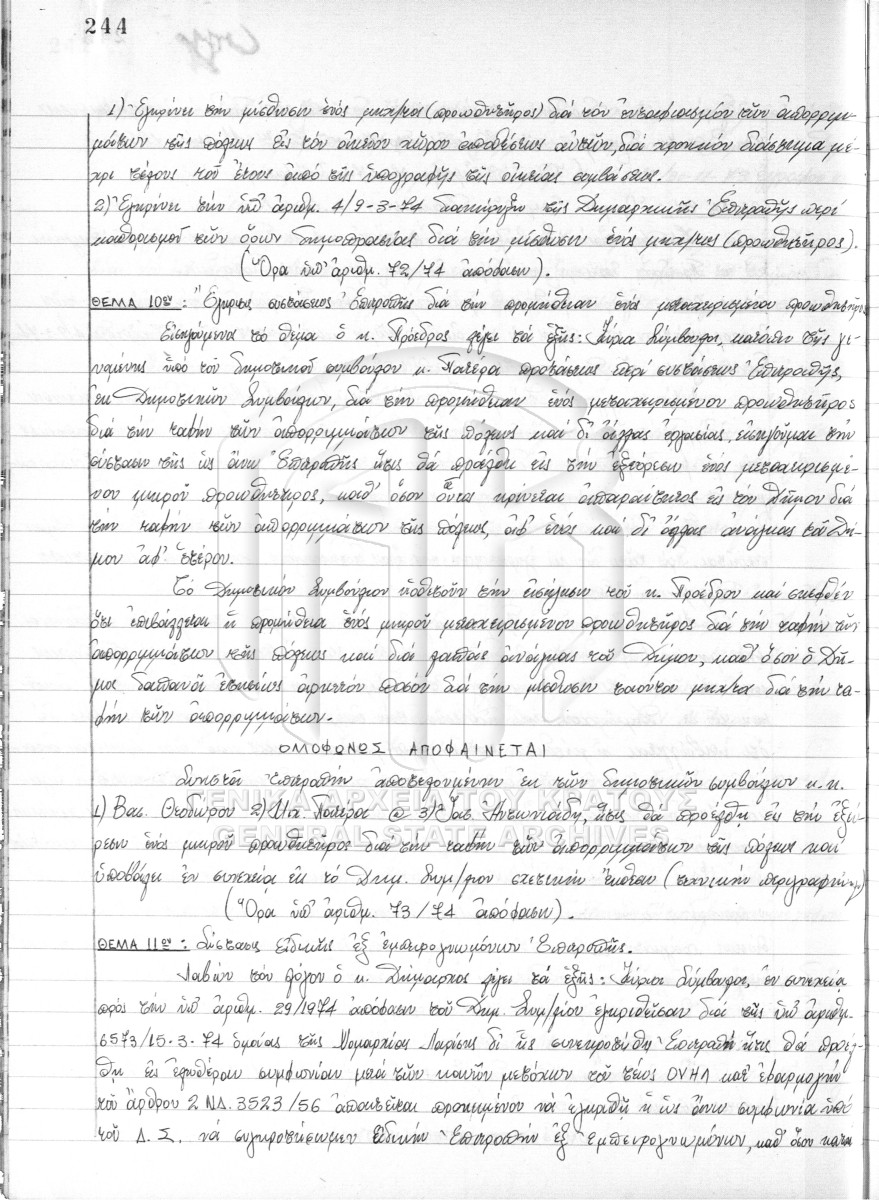 244
1) Ἐγκρίνει τήν μίσθωσιν ἑνός μηχ/τος (προωθητῆρος) διά τόν ἐνταφιασμόν τῶν ἀπορριμ-
μάτων τῆς πόλεως εἰς τόν οἰκεῖον χῶρον ἀποθέσεως αὐτῶν, διά χρονικόν διάστημα μέ-
χρι τέλους τοῦ ἔτους ἀπό τῆς ὑπογραφῆς τῆς οἰκείας συμβάσεως.
2) Ἐγκρίνει τήν ὑπ' ἀριθμ. 4/9-3-74 διακήρυξιν τῆς Δημαρχιακῆς Ἐπιτροπῆς περί
καθορισμοῦ τῶν ὅρων δημοπρασίας διά τήν μίσθωσιν ἑνός μηχ/τος (προωθητῆρος).
(Ὅρα ὑπ' ἀριθμ. 72/74 ἀπόφασιν).
ΘΕΜΑ 10ον: Ἔγκρισις συστάσεως Ἐπιτροπῆς διά τήν προμήθειαν ἑνός μεταχειρισμένου προωθητῆρος
Εἰσηγούμενος τό θέμα ὁ κ. Πρόεδρος λέγει τά ἑξῆς: Κύριοι Σύμβουλοι, κατόπιν τῆς γε-
νομένης ὑπό τοῦ δημοτικοῦ συμβούλου κ. Πατέρα προτάσεως περί συστάσεως Ἐπιτροπῆς,
ἐκ Δημοτικῶν Συμβούλων, διά τήν προμήθειαν ἑνός μεταχειρισμένου προωθητῆρος
διά τήν ταφήν τῶν ἀπορριμμάτων τῆς πόλεως καί δι' ἄλλας ἐργασίας, εἰσηγοῦμαι τήν
σύστασιν τῆς ὡς ἄνω Ἐπιτροπῆς ἥτις θά προέλθη εἰς τήν ἐξεύρεσιν ἑνός μεταχειρισμέ-
νου μικροῦ προωθητῆρος, καθ' ὅσον οὗτος κρίνεται ἀπαραίτητος εἰς τόν Δῆμον διά
τήν ταφήν τῶν ἀπορριμμάτων τῆς πόλεως, ἀφ' ἑνός καί δι' ἄλλας ἀνάγκας τοῦ Δή-
μου ἀφ' ἑτέρου.
Τό Δημοτικόν Συμβούλιον ἀκοῦσαν τήν εἰσήγησιν τοῦ κ. Προέδρου καί σκεφθέν
ὅτι ἐπιβάλλεται ἡ προμήθεια ἑνός μικροῦ μεταχειρισμένου προωθητῆρος διά τήν ταφήν τῶν
ἀπορριμμάτων τῆς πόλεως καί διά λοιπάς ἀνάγκας τοῦ Δήμου, καθ' ὅσον ὁ Δῆ-
μος δαπανᾶ ἐτησίως ἀρκετόν ποσόν διά τήν μίσθωσιν τοιούτου μηχ/τος διά τήν τα-
φήν τῶν ἀπορριμμάτων.-
ΟΜΟΦΩΝΩΣ ΑΠΟΦΑΙΝΕΤΑΙ
Συνιστᾶ ἐπιτροπήν ἀποτελουμένην ἐκ τῶν δημοτικῶν συμβούλων κ.κ.
1) Βασ. Θεοδώρου 2) Μιχ. Πατέρας @ 3) Ἰωσ. Ἀντωνιάδη, ἥτις θά προέλθη εἰς τήν ἐξεύ-
ρεσιν ἑνός μικροῦ προωθητῆρος διά τήν ταφήν τῶν ἀπορριμμάτων τῆς πόλεως καί
ὑποβάλει ἐν συνεχεία εἰς τό Δημ. Συμ/λιον σχετικήν ἔκθεσιν (τεχνικήν περιγραφήν κ.λ.)
(Ὅρα ὑπ' ἀριθμ. 73/74 ἀπόφασιν).
ΘΕΜΑ 11ον: Σύστασις εἰδικῆς ἐξ ἐμπειρογνωμόνων Ἐπιτροπῆς.
Λαβών τόν λόγον ὁ κ. Δήμαρχος λέγει τά ἑξῆς: Κύριοι Σύμβουλοι, ἐν συνεχεία
πρός τήν ὑπ' ἀριθμ. 29/1974 ἀπόφασιν τοῦ Δημ. Συμ/λίου ἐγκριθεῖσαν διά τῆς ὑπ' ἀριθμ.
6573/15-3-74 ὁμοίας τῆς Νομαρχίας Λαρίσης δι' ἧς συνεκροτήθη Ἐπιτροπή ἥτις θά προέλ-
θη εἰς ἐλευθέραν συμφωνίαν μετά τῶν κοινῶν μετόχων τοῦ τέως ΟΥΗΛ κατ' ἐφαρμογήν
τοῦ ἄρθρου 2 ΝΔ. 3523/56 ἀπαιτεῖται προκειμένου νά ἐγκριθῆ ἡ ὡς ἄνω συμφωνία ὑπό
τοῦ Δ.Σ. νά συγκροτήσωμεν εἰδικήν Ἐπιτροπήν ἐξ Ἐμπειρογνωμόνων, καθ' ὅσον κατά
ΓΕΝΙΚΑ ΑΡΧΕΙΑ ΤΟΥ ΚΡΑΤΟΥΣ
GENERAL STATE ARCHIVES